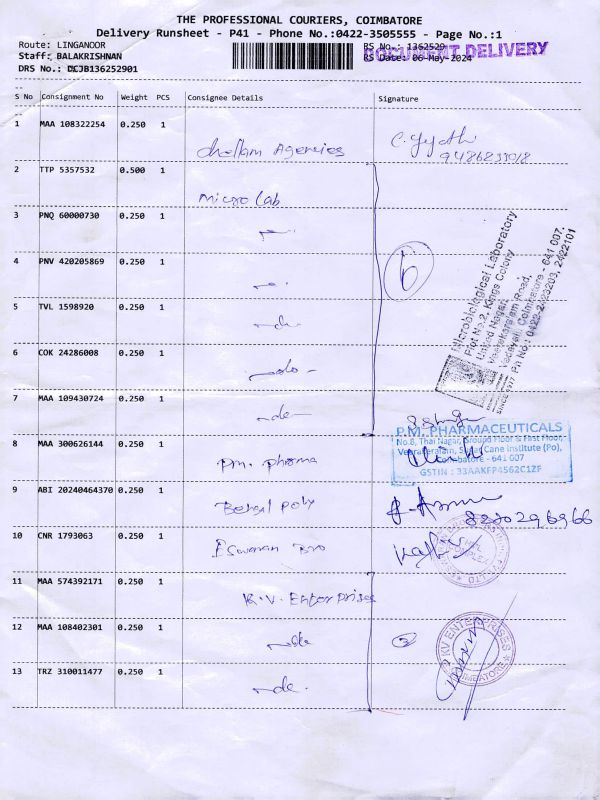 THE PROFESSIONAL COURIERS, COIMBATORE
Delivery Runsheet - P41 - Phone No.:0422-3505555 - Page No.:1
Route: LINGANOOR
Staff: BALAKRISHNAN
DRS No.: DCJB136252901
RS No.: 1362529
RS Date: 06-May-2024
DOCUMENT DELIVERY
S No Consignment No Weight PCS Consignee Details Signature
1 MAA 108322254 0.250 1 chellam Agencies
9486233018
2 TTP 5357532 0.500 1 Micro Lab
3 PNQ 60000730 0.250 1
4 PNV 420205869 0.250 1
5 TVL 1598920 0.250 1 do
6 COK 24286008 0.250 1 do
7 MAA 109430724 0.250 1 do
6
Microbiological Laboratory
Plot No.2, Kings Colony
United Nagar,
Veerakeralam Road,
Vadavalli, Coimbatore - 641 007.
SINCE 1977 Ph No.: 0422-2423203, 2422101
8 MAA 300626144 0.250 1 Pm. pharma
P.M. PHARMACEUTICALS
No.8, Thai Nagar, Ground Floor & First Floor,
Veerakeralam, Sugar Cane Institute (Po),
Coimbatore - 641 007
GSTIN : 33AAKFP4562C1ZF
9 ABI 20240464370 0.250 1 Bengal poly
8220296966
10 CNR 1793063 0.250 1 Eswaran Bro
11 MAA 574392171 0.250 1 K.V. Enterprises
12 MAA 108402301 0.250 1 do
2
KV ENTERPRISES
COIMBATORE
13 TRZ 310011477 0.250 1 do